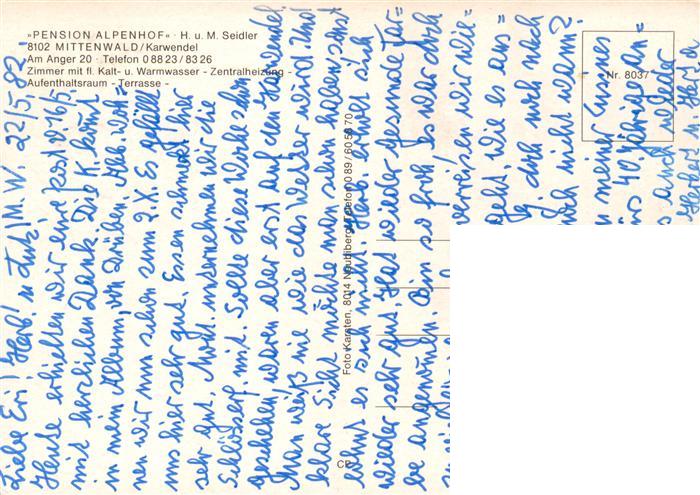 »PENSION ALPENHOF« · H. u. M. Seidler
8102 MITTENWALD/Karwendel
Am Anger 20 · Telefon 0 88 23 / 83 26
Zimmer mit fl. Kalt- u. Warmwasser - Zentralheizung -
Aufenthaltsraum - Terrasse -
Nr. 8037
Foto Karsten, 8014 Neubiberg, Telefon 0 89 / 60 56 70
M.W. 22/5. 82.
Liebe Eri! Herb! u Lutz!
Heute erhielten wir eure Post v. 16/5.
mit herzlichen Dank. Die K. kommt
in mein Album, von Drüben. Hier woh
nen wir nun schon zum 2 X. Es gefällt
uns hier sehr gut. Essen schmeckt hier
sehr gut. unternehmen wir die
Schlösserf. mit. Sollte diese Woche schon
geschehen, waren aber erst auf den Karwendel.
Man weiß nie wie das Wetter wird. Und
klare Sicht möchte man schon haben, sonst
lohnt es sich nicht. Herb. erholt sich
wieder sehr gut. Hat wieder gesunde Far-
be angenommen. Bin so froh, es war doch
verreisen wir wie-
geht, wie es aus=
doch noch nach
nicht wann?
meiner Cusines
40. jährige an-
auch wieder
Herbert